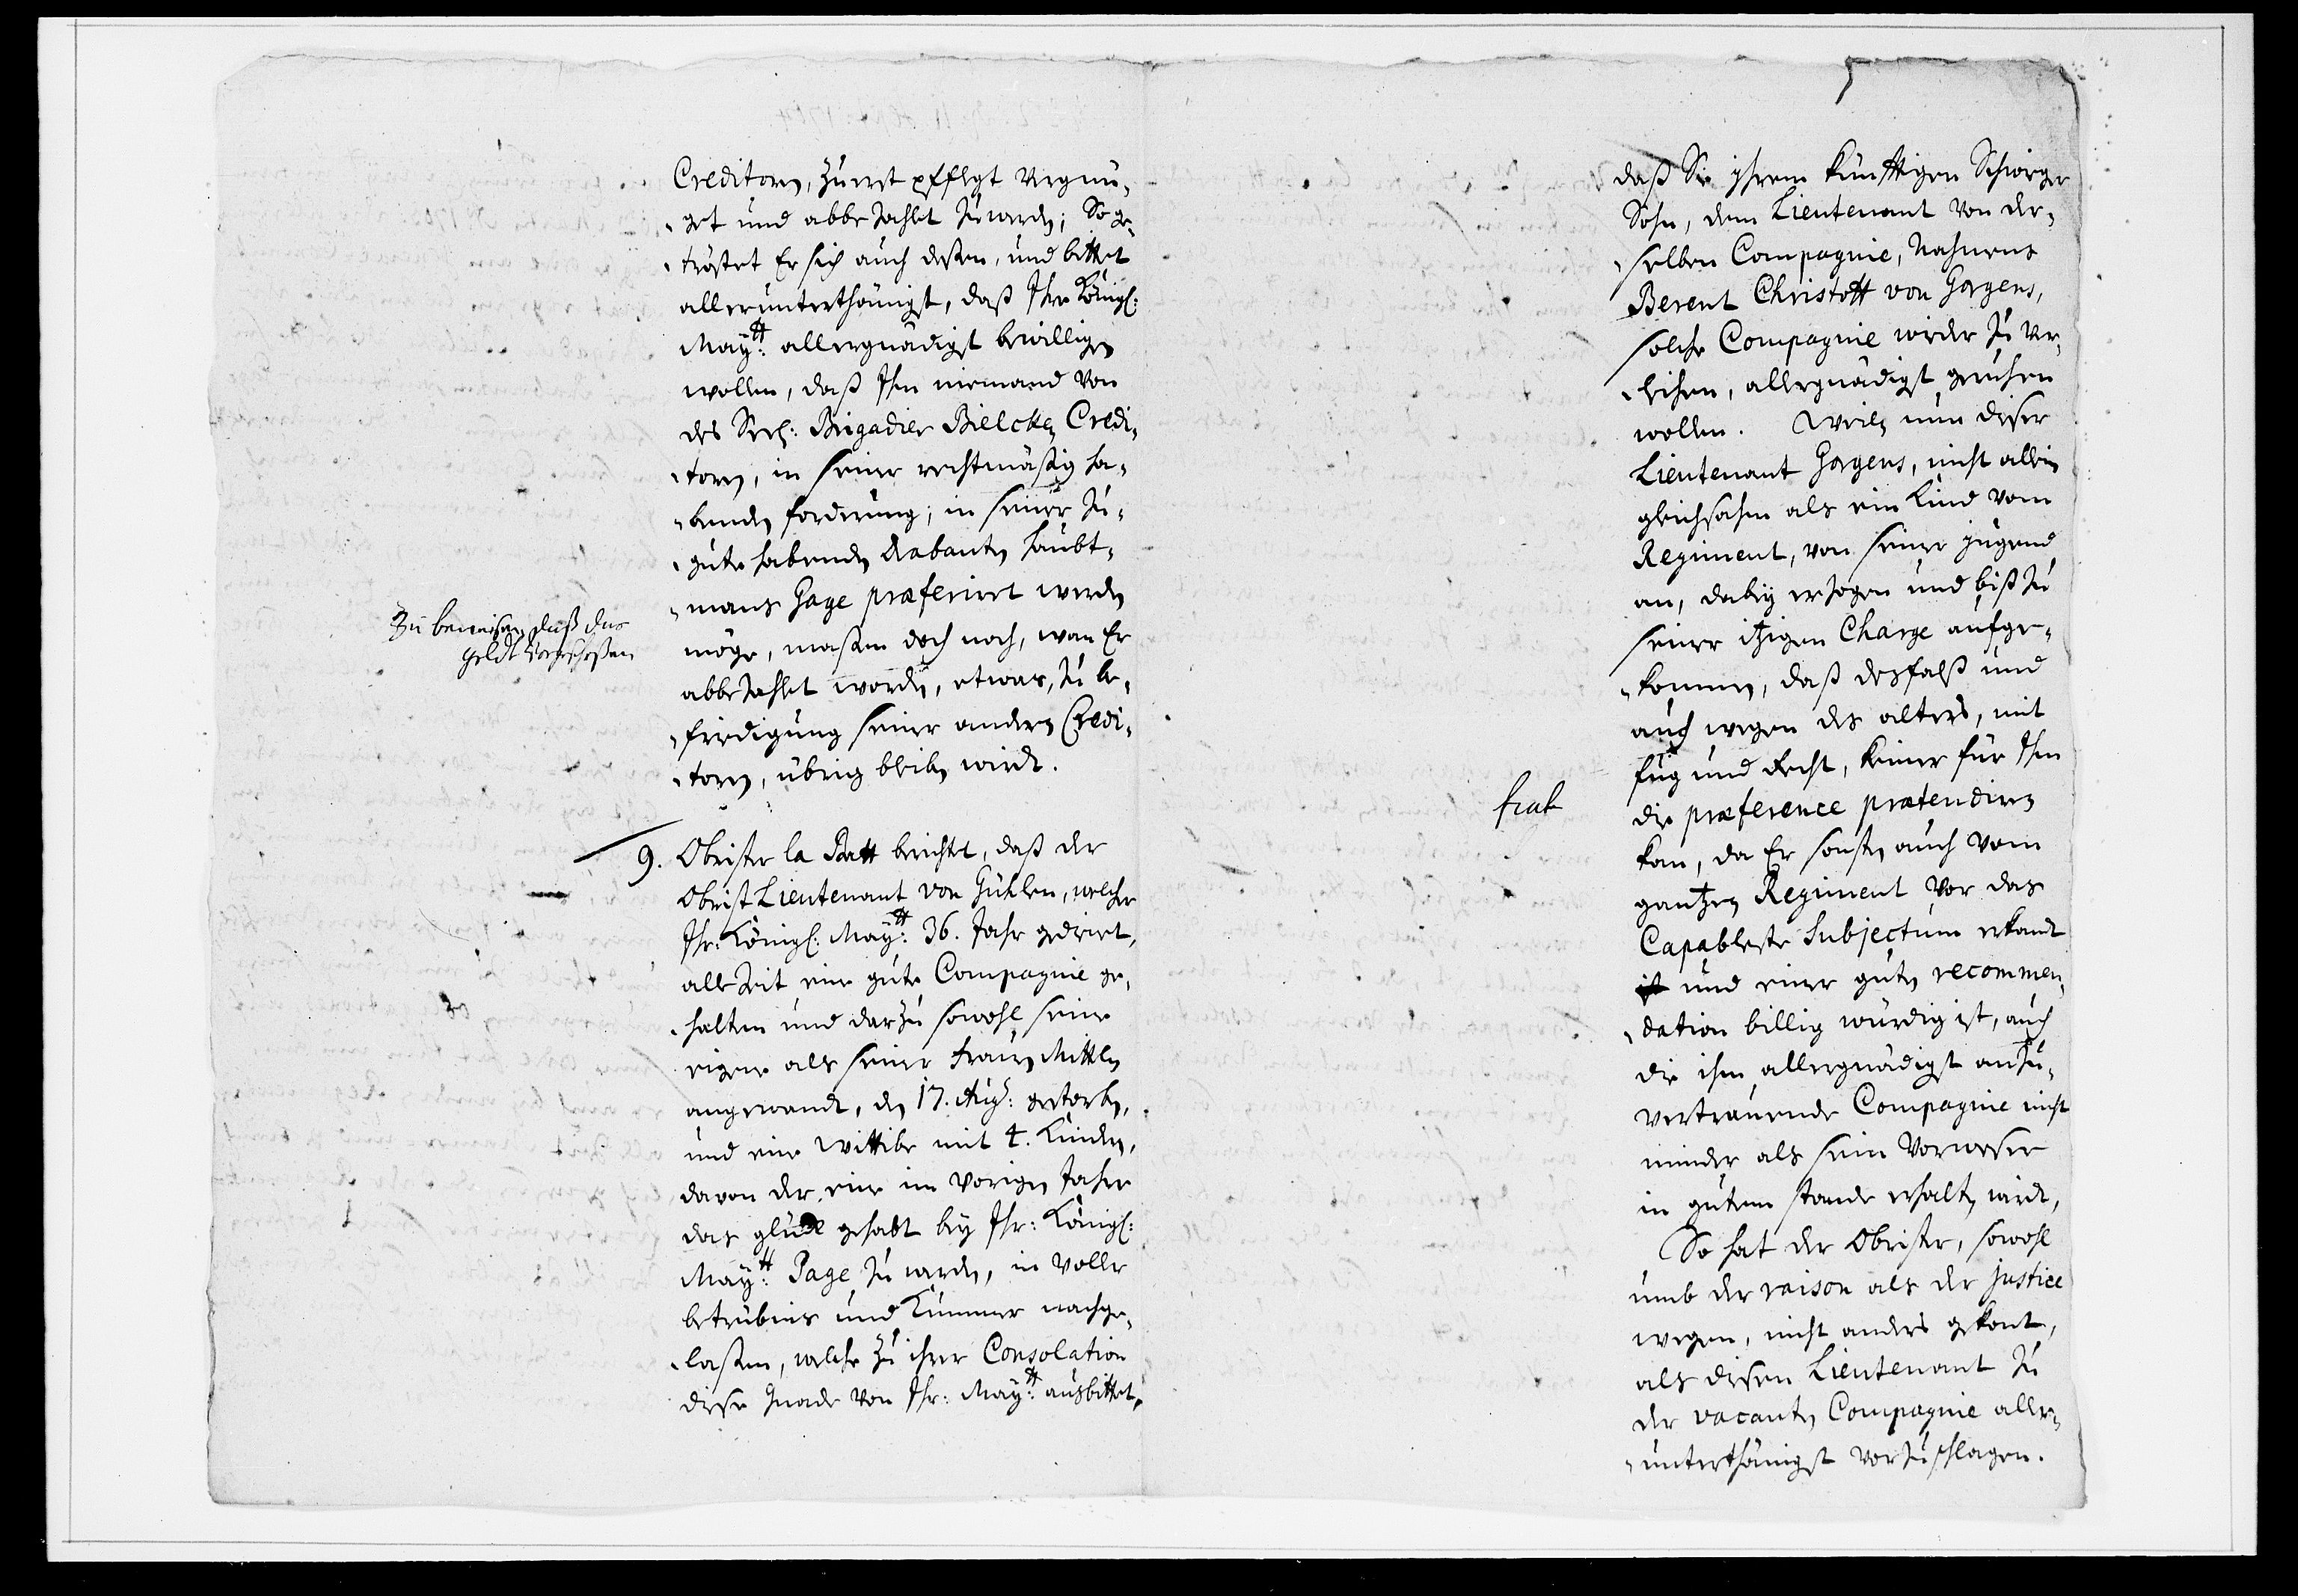 Creditoren, zuerst pfflegt vergnü-
-get und abbezahlet zu werden; So ge-
-tröstet Er sich auch deßen, und bittet
allerunterthänigst, daß Ihr Königl:
Mayтt: allergnädigst bewilligen
wollen, daß Ihm niemand von
des Seel: Brigadier Bielcken Credi-
-toren, in seiner rechtmäßig ha-
-benden forderung; in seiner zu-
-gute habenden Drabanten haubt-
-mans Gage præferiret werden
möge, maßen doch noch, wan Er
abbezahlet worden, etwas, zu be-
-friedigung seiner andern Credi-
-toren, übrig bleiben wirdt.
Zu beweisen daß das
geldt vorgeschoßen
9. Obrister la Patt berichtet, daß der
Obrist Lieutenant von Gühlen, welcher
Ihr: Königl: Maytt: 36. Jahr gedienet,
allezeit eine gute Compagnie ge-
-halten und darzu sowohl seine
eigene als seiner frauen Mittln
angewandt, den 17. Aug: gestorben,
und eine Wittibe mit 4. Kindern,
davon der eine im vorigen Jahre
das glück gehabt bey Ihr: Königl:
Maytt: Page zu werden, in voller
betrübnis und Kummer nachge-
-laßen, welche zu ihrer Consolation
diese Gnade von Ihr: Maytt: ausbittet,
daß Sie ihrem künfftigen Schwieger
Sohn, dem Lieutenant von der-
-selben Compagnie, Nahmens
Berent Christoff von Gorgens,
solche Compagnie wieder zu ver-
-leihen, allergnädigst geruhen
wollen. Weilen nun dieser
Lieutenant Gorgens, nicht allein
gleichsahm als ein Kind vom
Regiment, von seiner jugend
an, dabey erzogen und biß zu
seiner itzigen Charge aufge-
-kommen, daß desfalß und
auch wegen des alters, mit
fug und Recht, keiner für Ihm
die præference prætendiren
kan, da Er sonsten auch vom
gantzen Regiment vor das
Capableste Subjectum erkandt
ist und einer guten recommen-
-dation billig würdig ist, auch
die ihm allergnädigst anzu-
vertrauende Compagnie nicht
minder als sein Vorweser
in gutem stande erhalten wirdt,
So hat der Obrister, sowohl
umb der raison als der justice
wegen, nicht anders gekont,
als diesen Lieutenant zu
der vacanten Compagnie aller-
-unterthänigst vorzuschlagen.